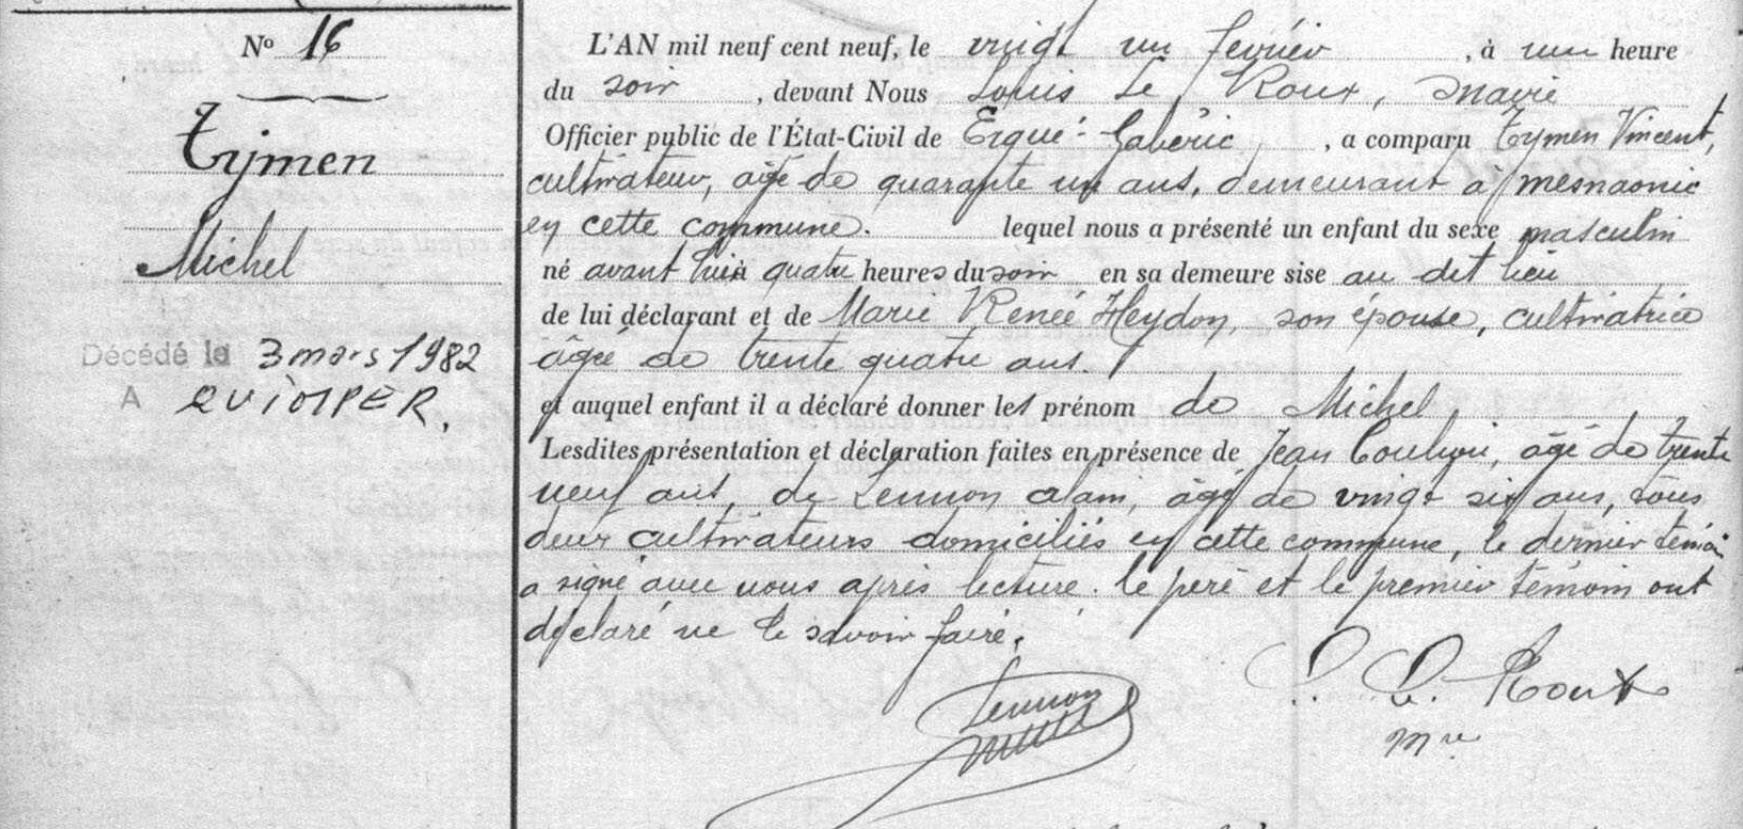 N° 16
Tymen
Michel
Décédé le 3 mars 1982
A QUIMPER.
L'AN mil neuf cent neuf, le vingt un fevrier, à une heure
du soir, devant Nous Louis Le Roux, Maire
Officier public de l'État-Civil de Ergué-Gabéric, a comparu Tymen Vincent,
cultivateur, âgé de quarante un ans, demeurant à mesnaonic
en cette commune. lequel nous a présenté un enfant du sexe masculin
né avant hier quatre heures du soir en sa demeure sise au dit lieu
de lui déclarant et de Marie Renée Heydon, son épouse, cultivatrice
âgée de trente quatre ans.
et auquel enfant il a déclaré donner les prénom de Michel,
Lesdites présentation et déclaration faites en présence de Jean, âgé de trente
neuf ans, de Lennon alain, âgé de vingt six ans, tous
deux cultivateurs domiciliés en cette commune, le dernier témoin
a signé avec nous après lecture. le père et le premier témoin ont
déclaré ne le savoir faire.
Lennon
L. L. Roux
Mre